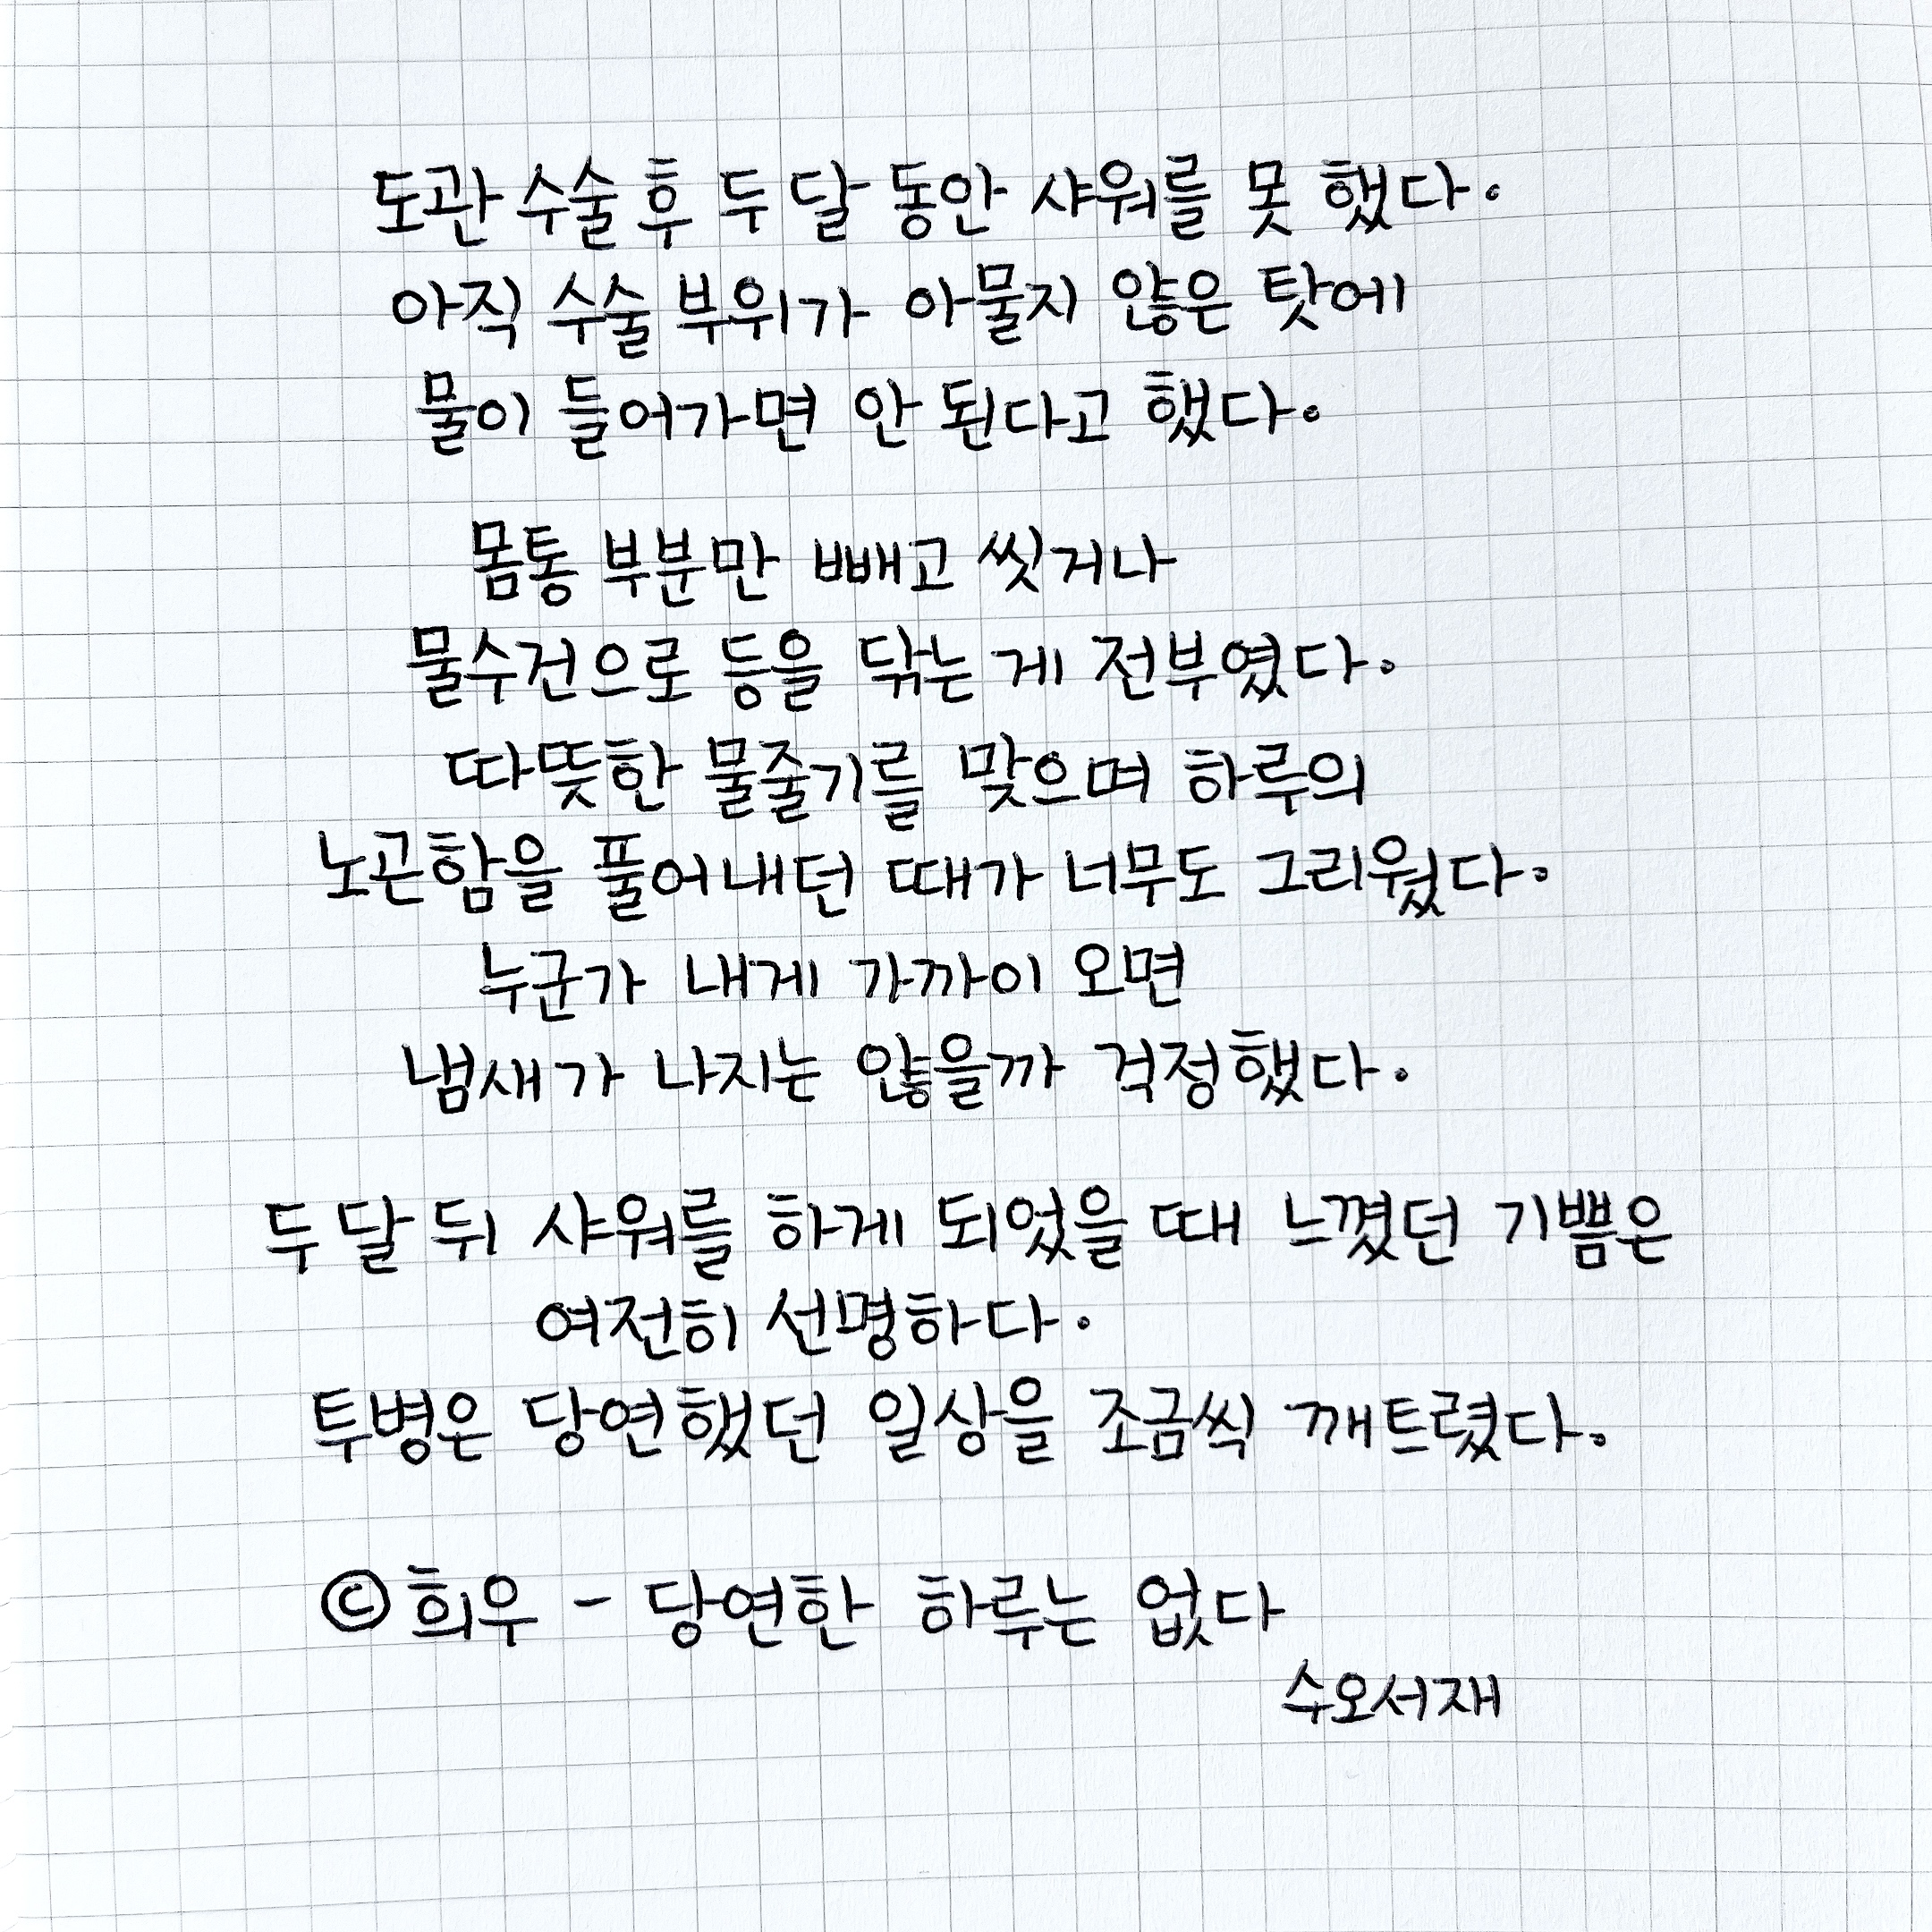 도관 수술 후 두 달 동안 샤워를 못 했다.
아직 수술 부위가 아물지 않은 탓에
물이 들어가면 안 된다고 했다.
몸통 부분만 빼고 씻거나
물수건으로 등을 닦는 게 전부였다.
따뜻한 물줄기를 맞으며 하루의
노곤함을 풀어내던 때가 너무도 그리웠다.
누군가 내게 가까이 오면
냄새가 나지는 않을까 걱정했다.
두 달 뒤 샤워를 하게 되었을 때 느꼈던 기쁨은
여전히 선명하다.
투병은 당연했던 일상을 조금씩 깨트렸다.
©희우 - 당연한 하루는 없다
수오서재